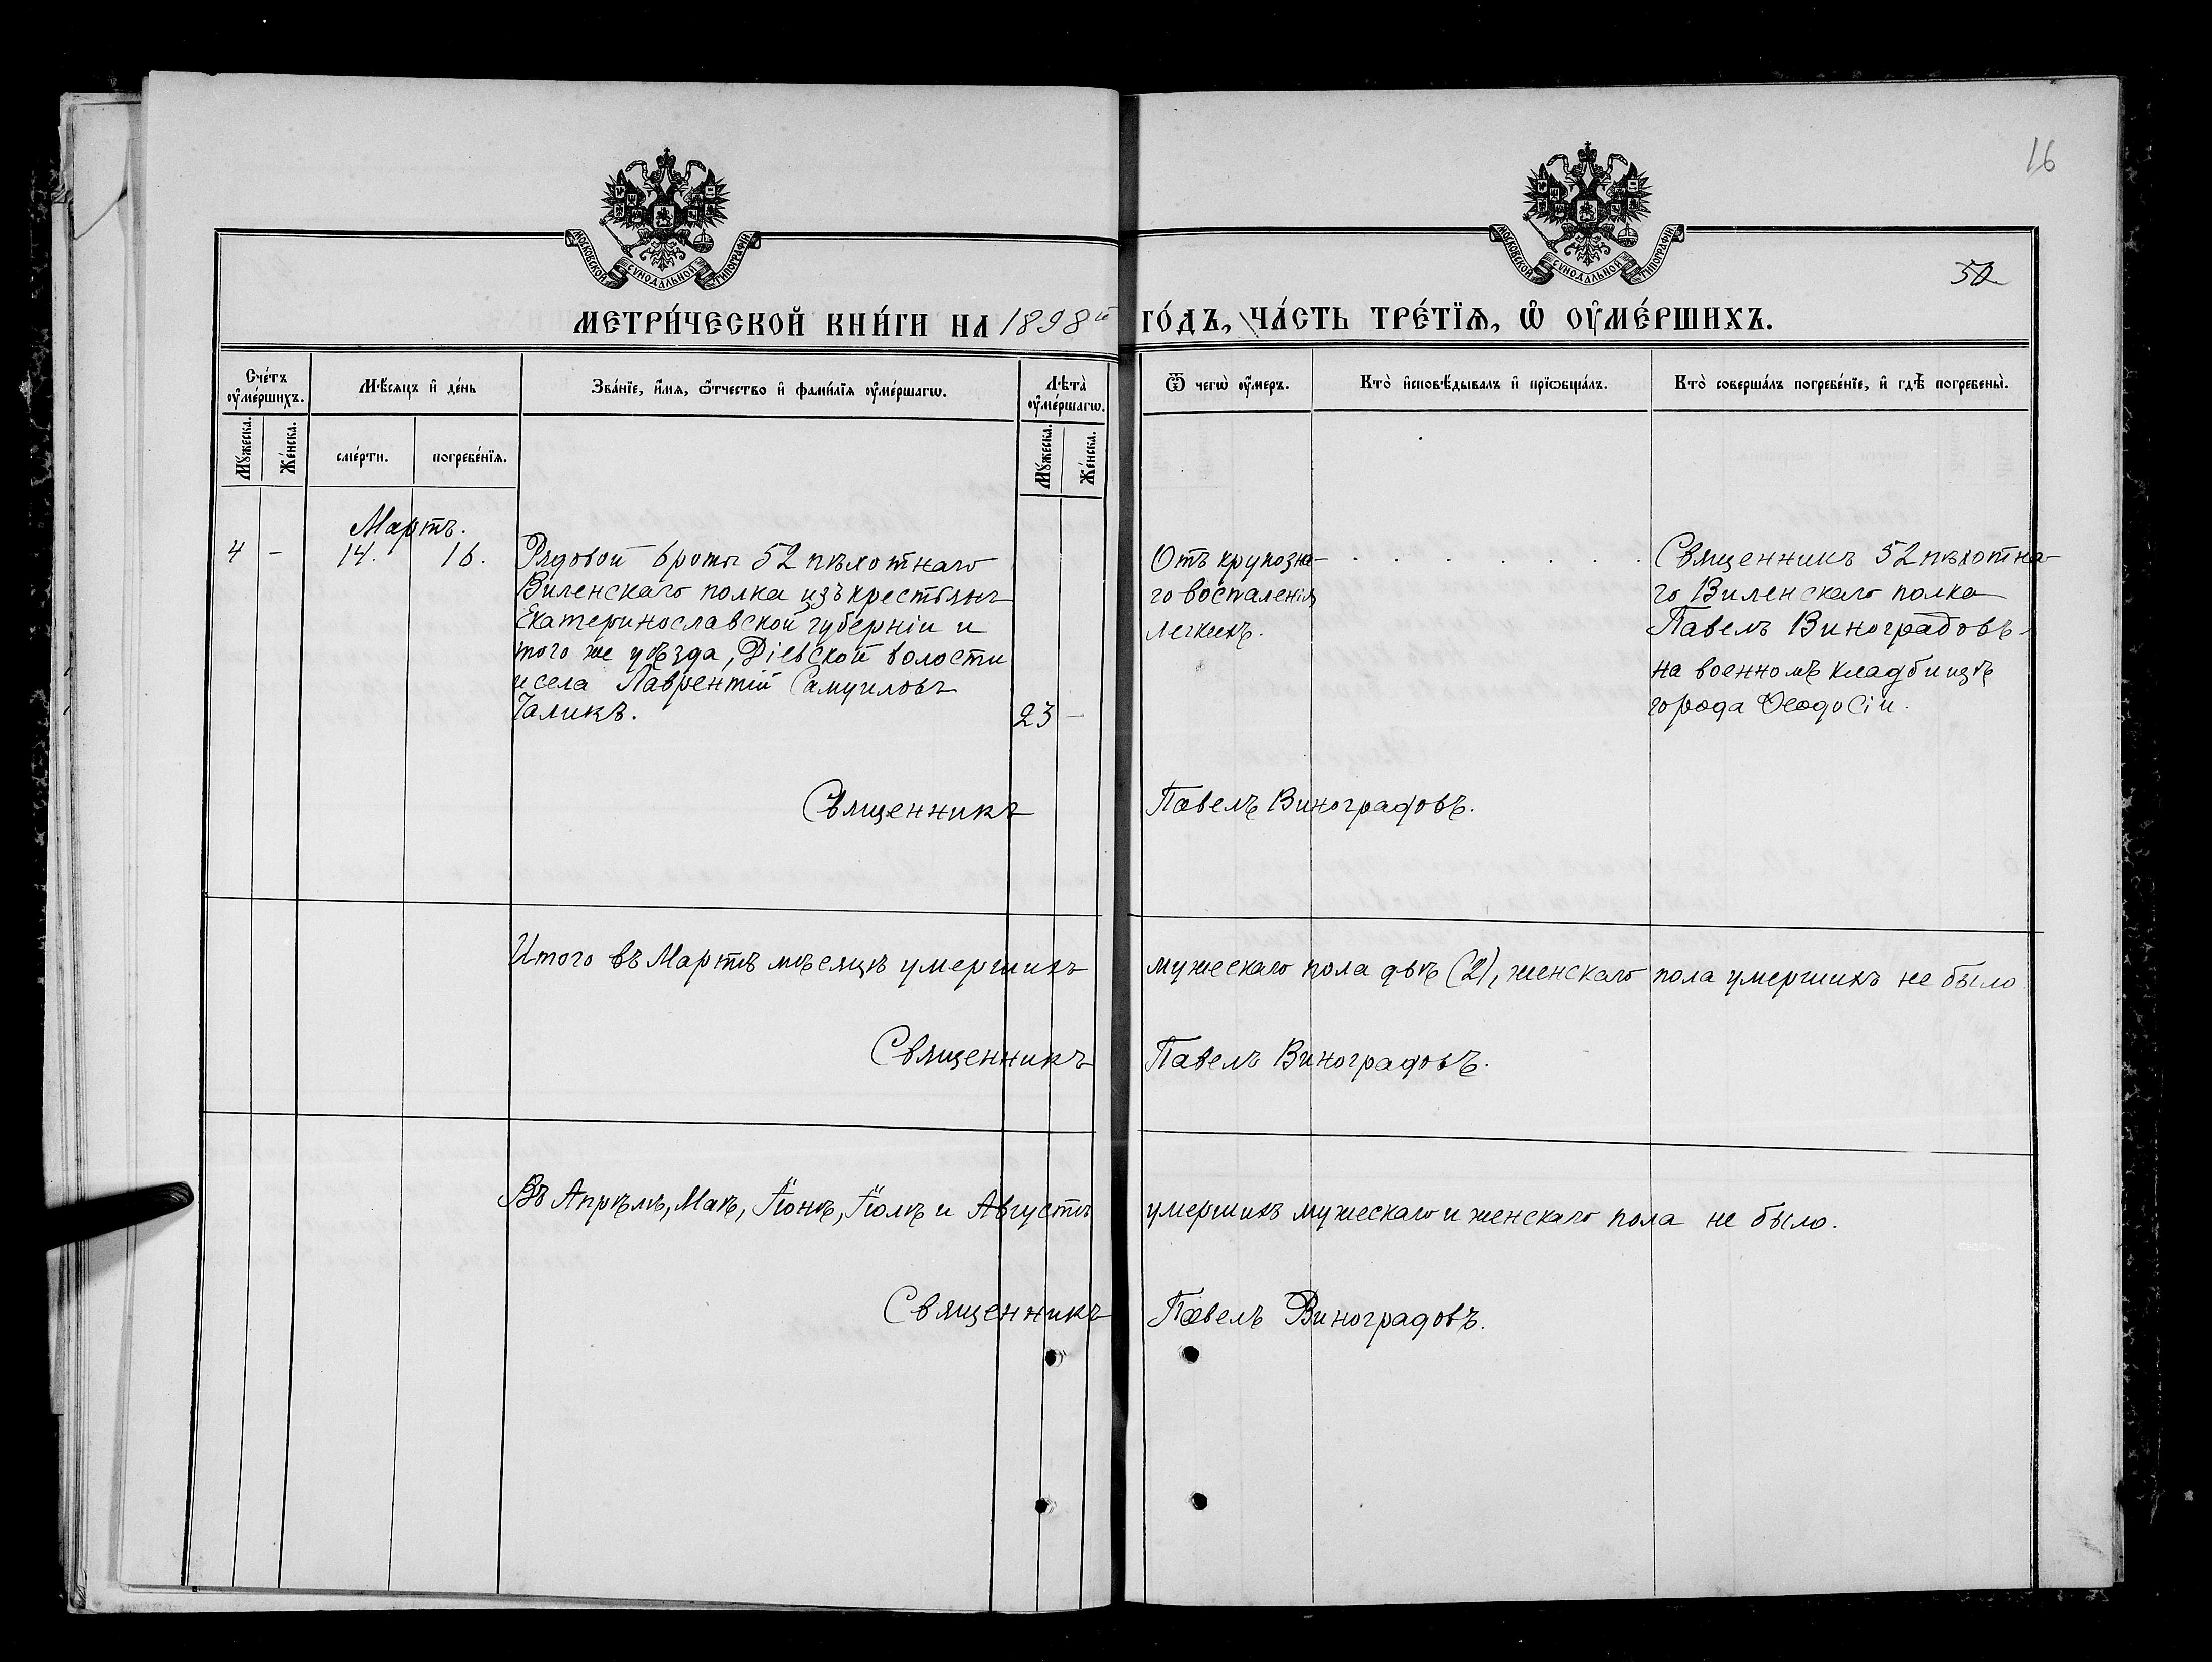 16
МОСКОВСКОЙ СѴНОДАЛЬНОЙ ТИПОГРАФІИ
МОСКОВСКОЙ СѴНОДАЛЬНОЙ ТИПОГРАФІИ
50
МЕТРИ́ЧЕСКОЙ КНИ́ГИ НА 1898й ГО́ДЪ, ЧА́СТЬ ТРЕ́ТЇѦ, Ѡ҆ ОУ҆МЕ́РШИХЪ.
Сче́тъ оу҆ме́ршихъ.
Мѣ́сѧцъ и҆ де́нь
Зва́нїе, и҆́мѧ, ѻ҆́тчество и҆ фами́лїѧ оу҆ме́ршагѡ.
Лѣ́та оу҆ме́ршагѡ.
Ѿ чегѡ̀ оу҆́меръ.
Кто̀ и҆сповѣ́дывалъ и҆ прїѡбща́лъ.
Кто̀ соверша́лъ погребе́нїе, и҆ гдѣ̀ погребены̀.
Му́жеска.
Же́нска.
сме́рти.
погребе́нїѧ.
Му́жеска.
Же́нска.
Мартъ.
4 – 14. 16. Рядовой 6 роты 52 пѣхотнаго
Виленскаго полка изъ крестьянъ
Екатеринославской губерніи и
того же уѣзда, Діевской волости
и села Лаврентій Самуиловъ
Чаликъ. 23 –
Отъ крупозна-
го воспаленія
легкихъ.
Священникъ 52 пѣхотна-
го Виленскаго полка
Павелъ Виноградовъ
на военномъ кладбищѣ
города Ѳеодосіи.
Священникъ Павелъ Виноградовъ.
Итого въ Мартѣ мѣсяцѣ умершихъ мужескаго пола двѣ (2), женскаго пола умершихъ не было
Священникъ Павелъ Виноградовъ.
Въ Апрѣлѣ, Маѣ, Іюнѣ, Іюлѣ и Августѣ умершихъ мужескаго и женскаго пола не было.
Священникъ Павелъ Виноградовъ.